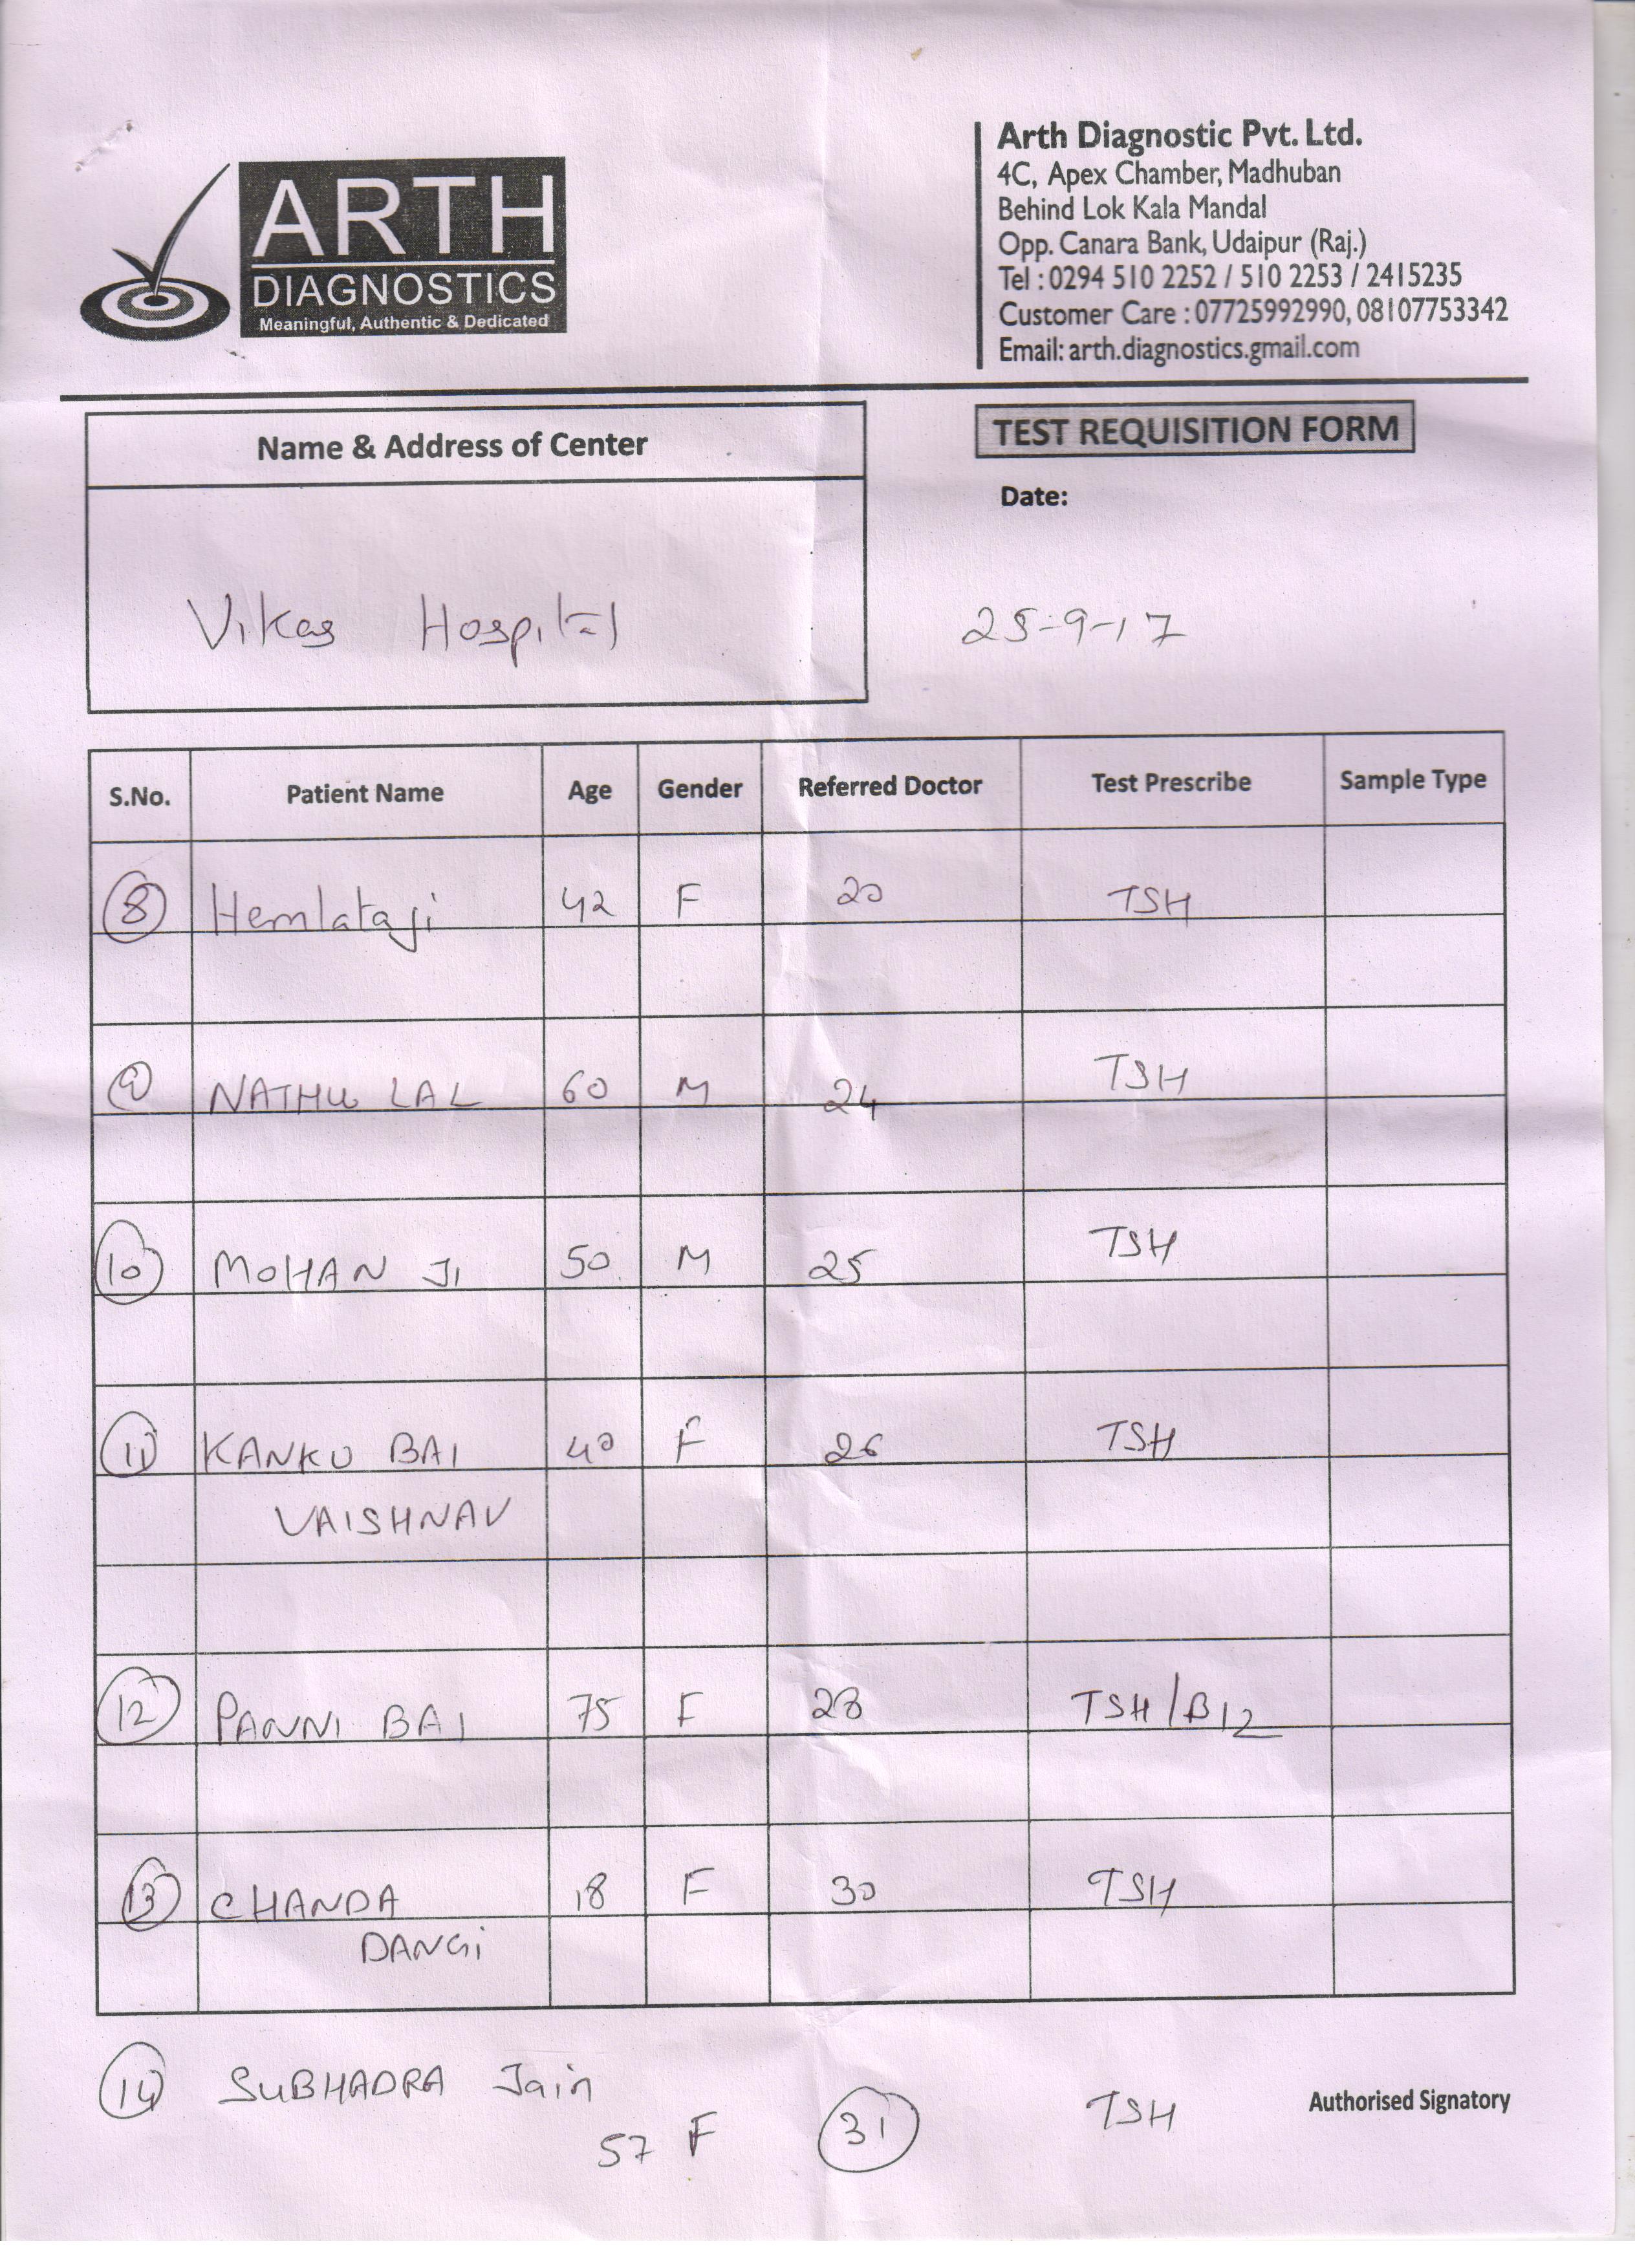 ARTH
DIAGNOSTICS
Meaningful, Authentic & Dedicated
Arth Diagnostic Pvt. Ltd.
4C, Apex Chamber, Madhuban
Behind Lok Kala Mandal
Opp. Canara Bank, Udaipur (Raj.)
Tel : 0294 510 2252 / 510 2253 / 2415235
Customer Care : 07725992990, 08107753342
Email: arth.diagnostics.gmail.com
Name & Address of Center
TEST REQUISITION FORM
Date:
Vikas Hospital
25-9-17
S.No. Patient Name Age Gender Referred Doctor Test Prescribe Sample Type
8 Hemlataji 42 F 20 TSH
9 NATHU LAL 60 M 24 TSH
10 MOHAN JI 50 M 25 TSH
11 KANKU BAI 40 F 26 TSH
VAISHNAV
12 PANNI BAI 75 F 28 TSH/B12
13 CHANDA 18 F 30 TSH
DANGi
14 SUBHADRA Jain
57 F 31 TSH
Authorised Signatory